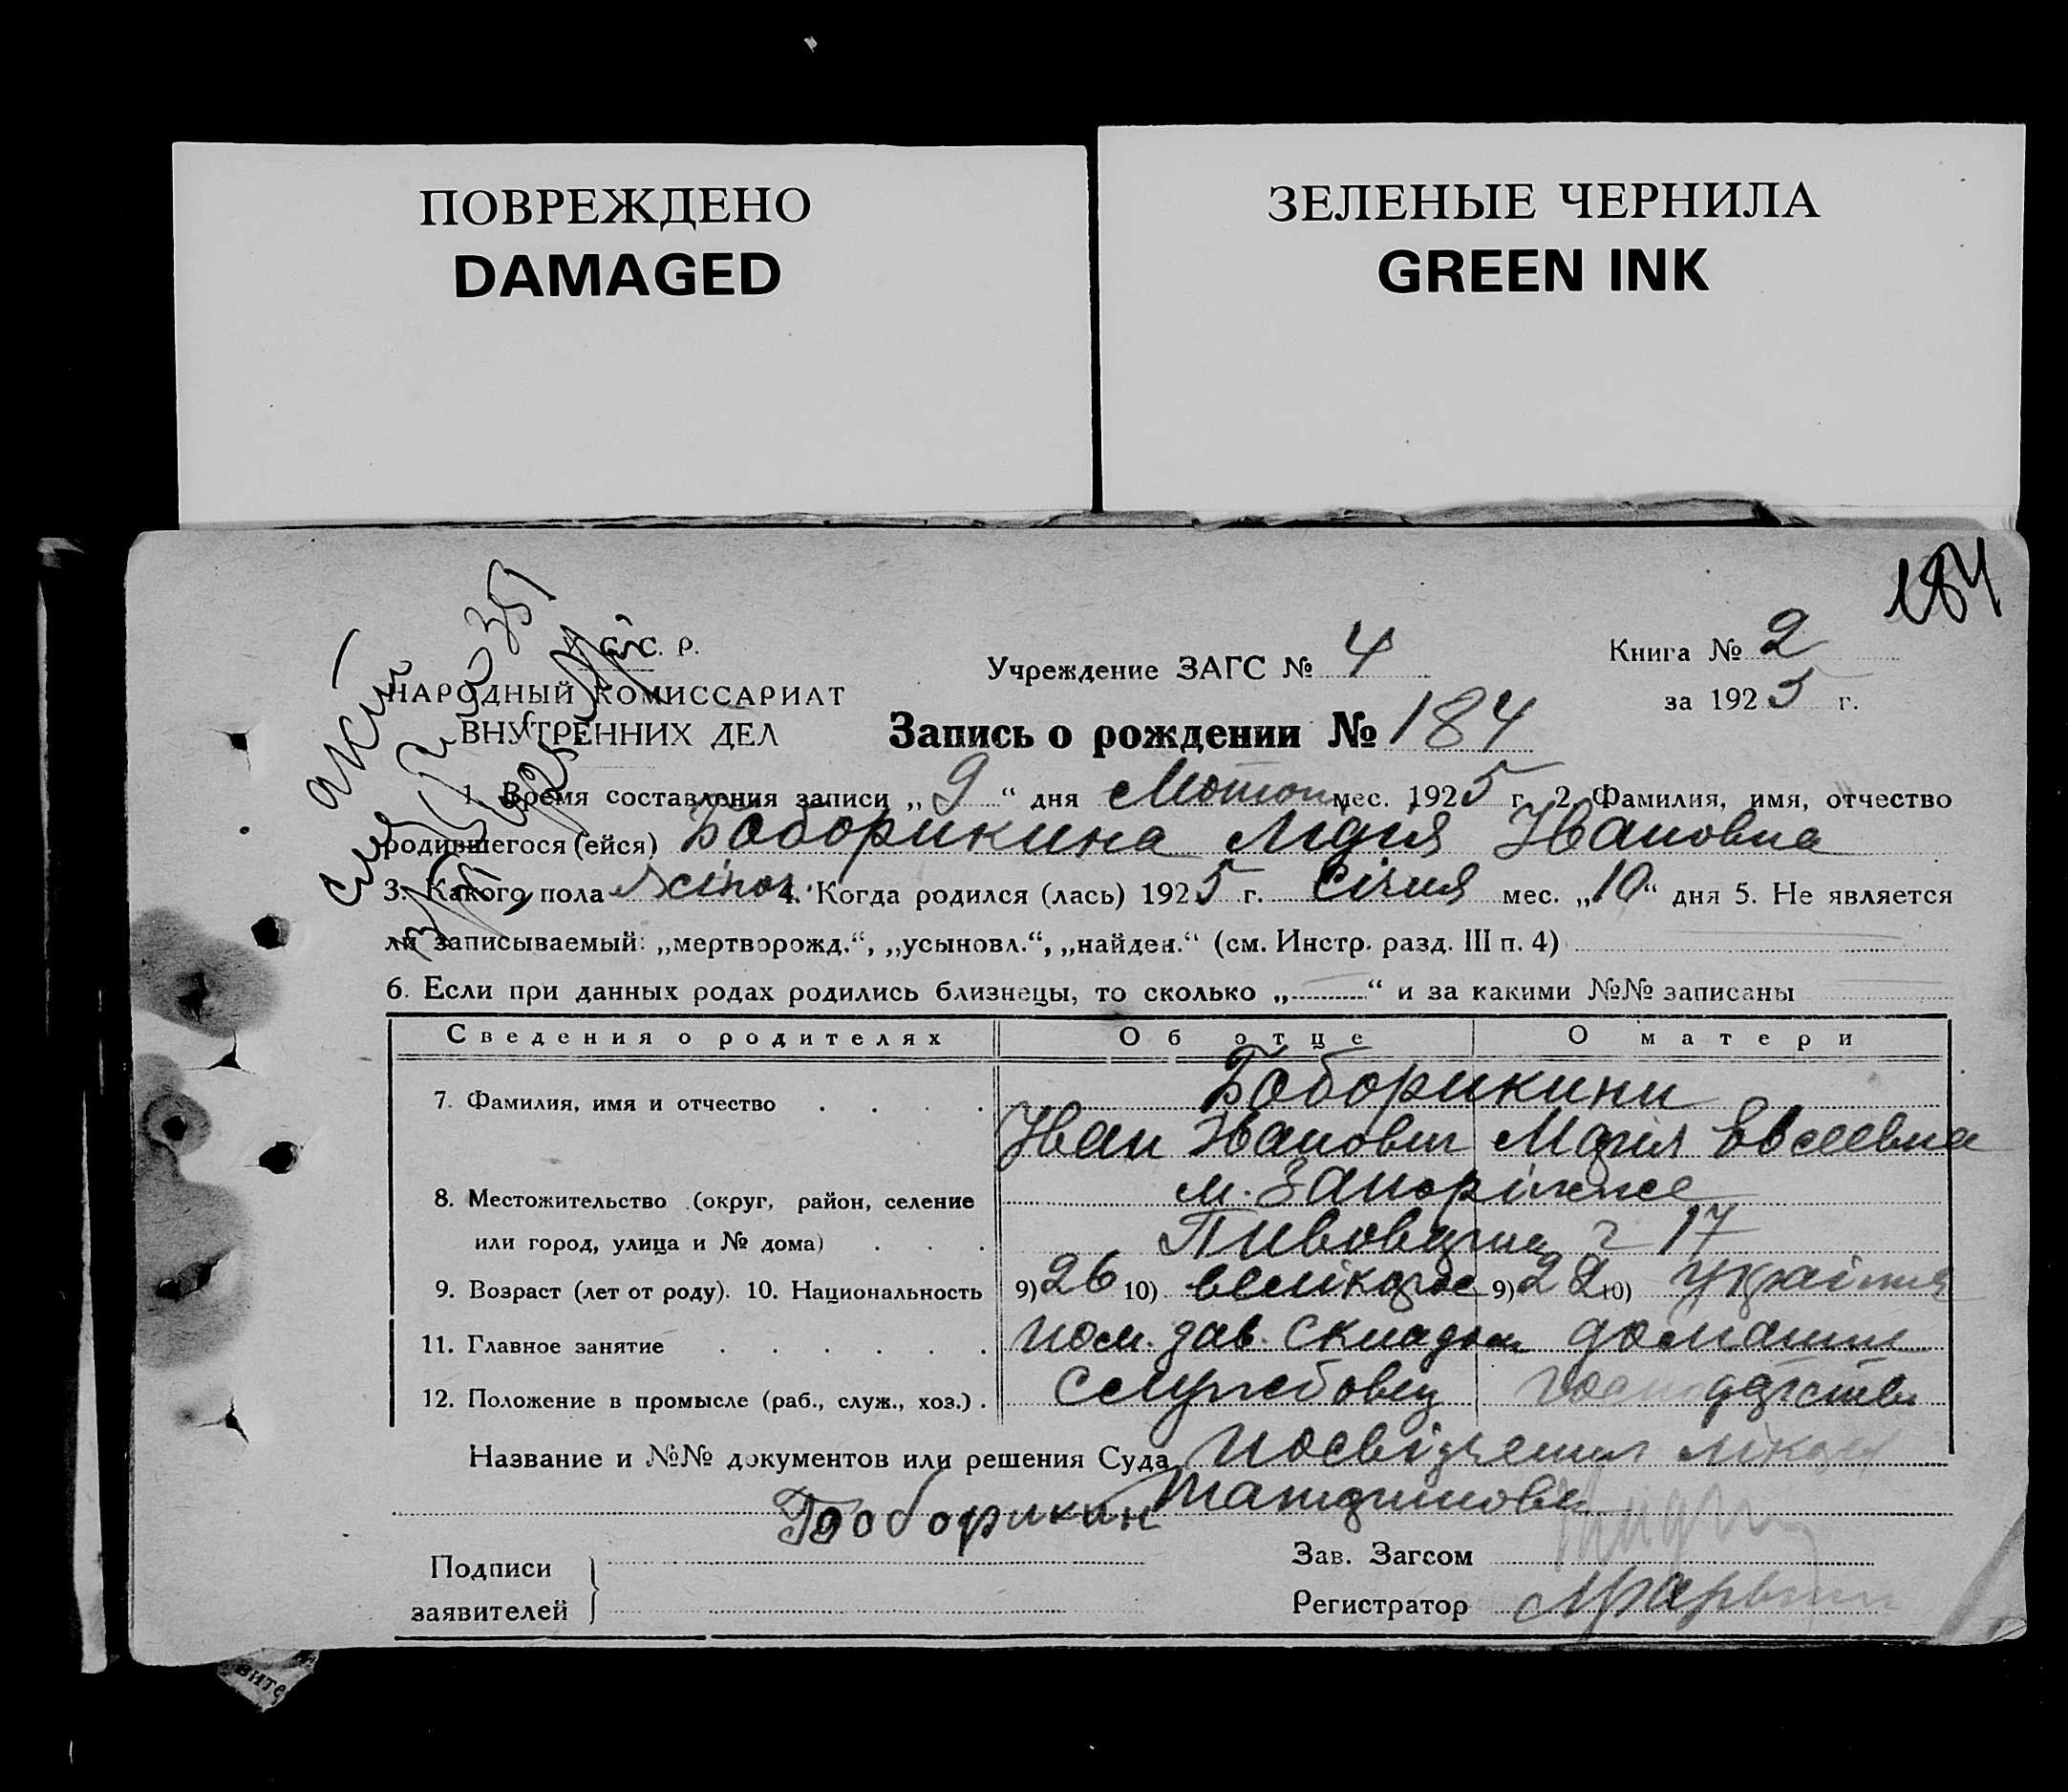 ПОВРЕЖДЕНО
DAMAGED
ЗЕЛЕНЫЕ ЧЕРНИЛА
GREEN INK
184
НАРОДНЫЙ КОМИССАРИАТ
ВНУТРЕННИХ ДЕЛ
Учреждение ЗАГС № 4
Книга № 2
за 1925 г.
Запись о рождении № 184
1. Время составления записи „9“ дня мес. 1925 г. 2. Фамилия, имя, отчество
родившегося (ейся) Боборикина Лідія Івановна
3. Какого пола жіноч. 4. Когда родился (лась) 1925 г. Січня мес. „10“ дня 5. Не является
ли записываемый: „мертворожд.“, „усыновл.“, „найден.“ (см. Инстр. разд. III п. 4)
6. Если при данных родах родились близнецы, то сколько „ “ и за какими №№ записаны
Сведения о родителях Об отце О матери
7. Фамилия, имя и отчество Боборикини
Іван Іванович Марія Евсеевна
8. Местожительство (округ, район, селение м. Запоріжжє
или город, улица и № дома) 17
9. Возраст (лет от роду). 10. Национальность 9) 26 10) великорос 9) 22 10) Україн
11. Главное занятие пом. зав. складом домашнє
12. Положение в промысле (раб., служ., хоз.) службовец господарство
Название и №№ документов или решения Суда Посвідчення лікаря
Боборикин
Подписи
заявителей
Зав. Загсом
Регистратор
вите